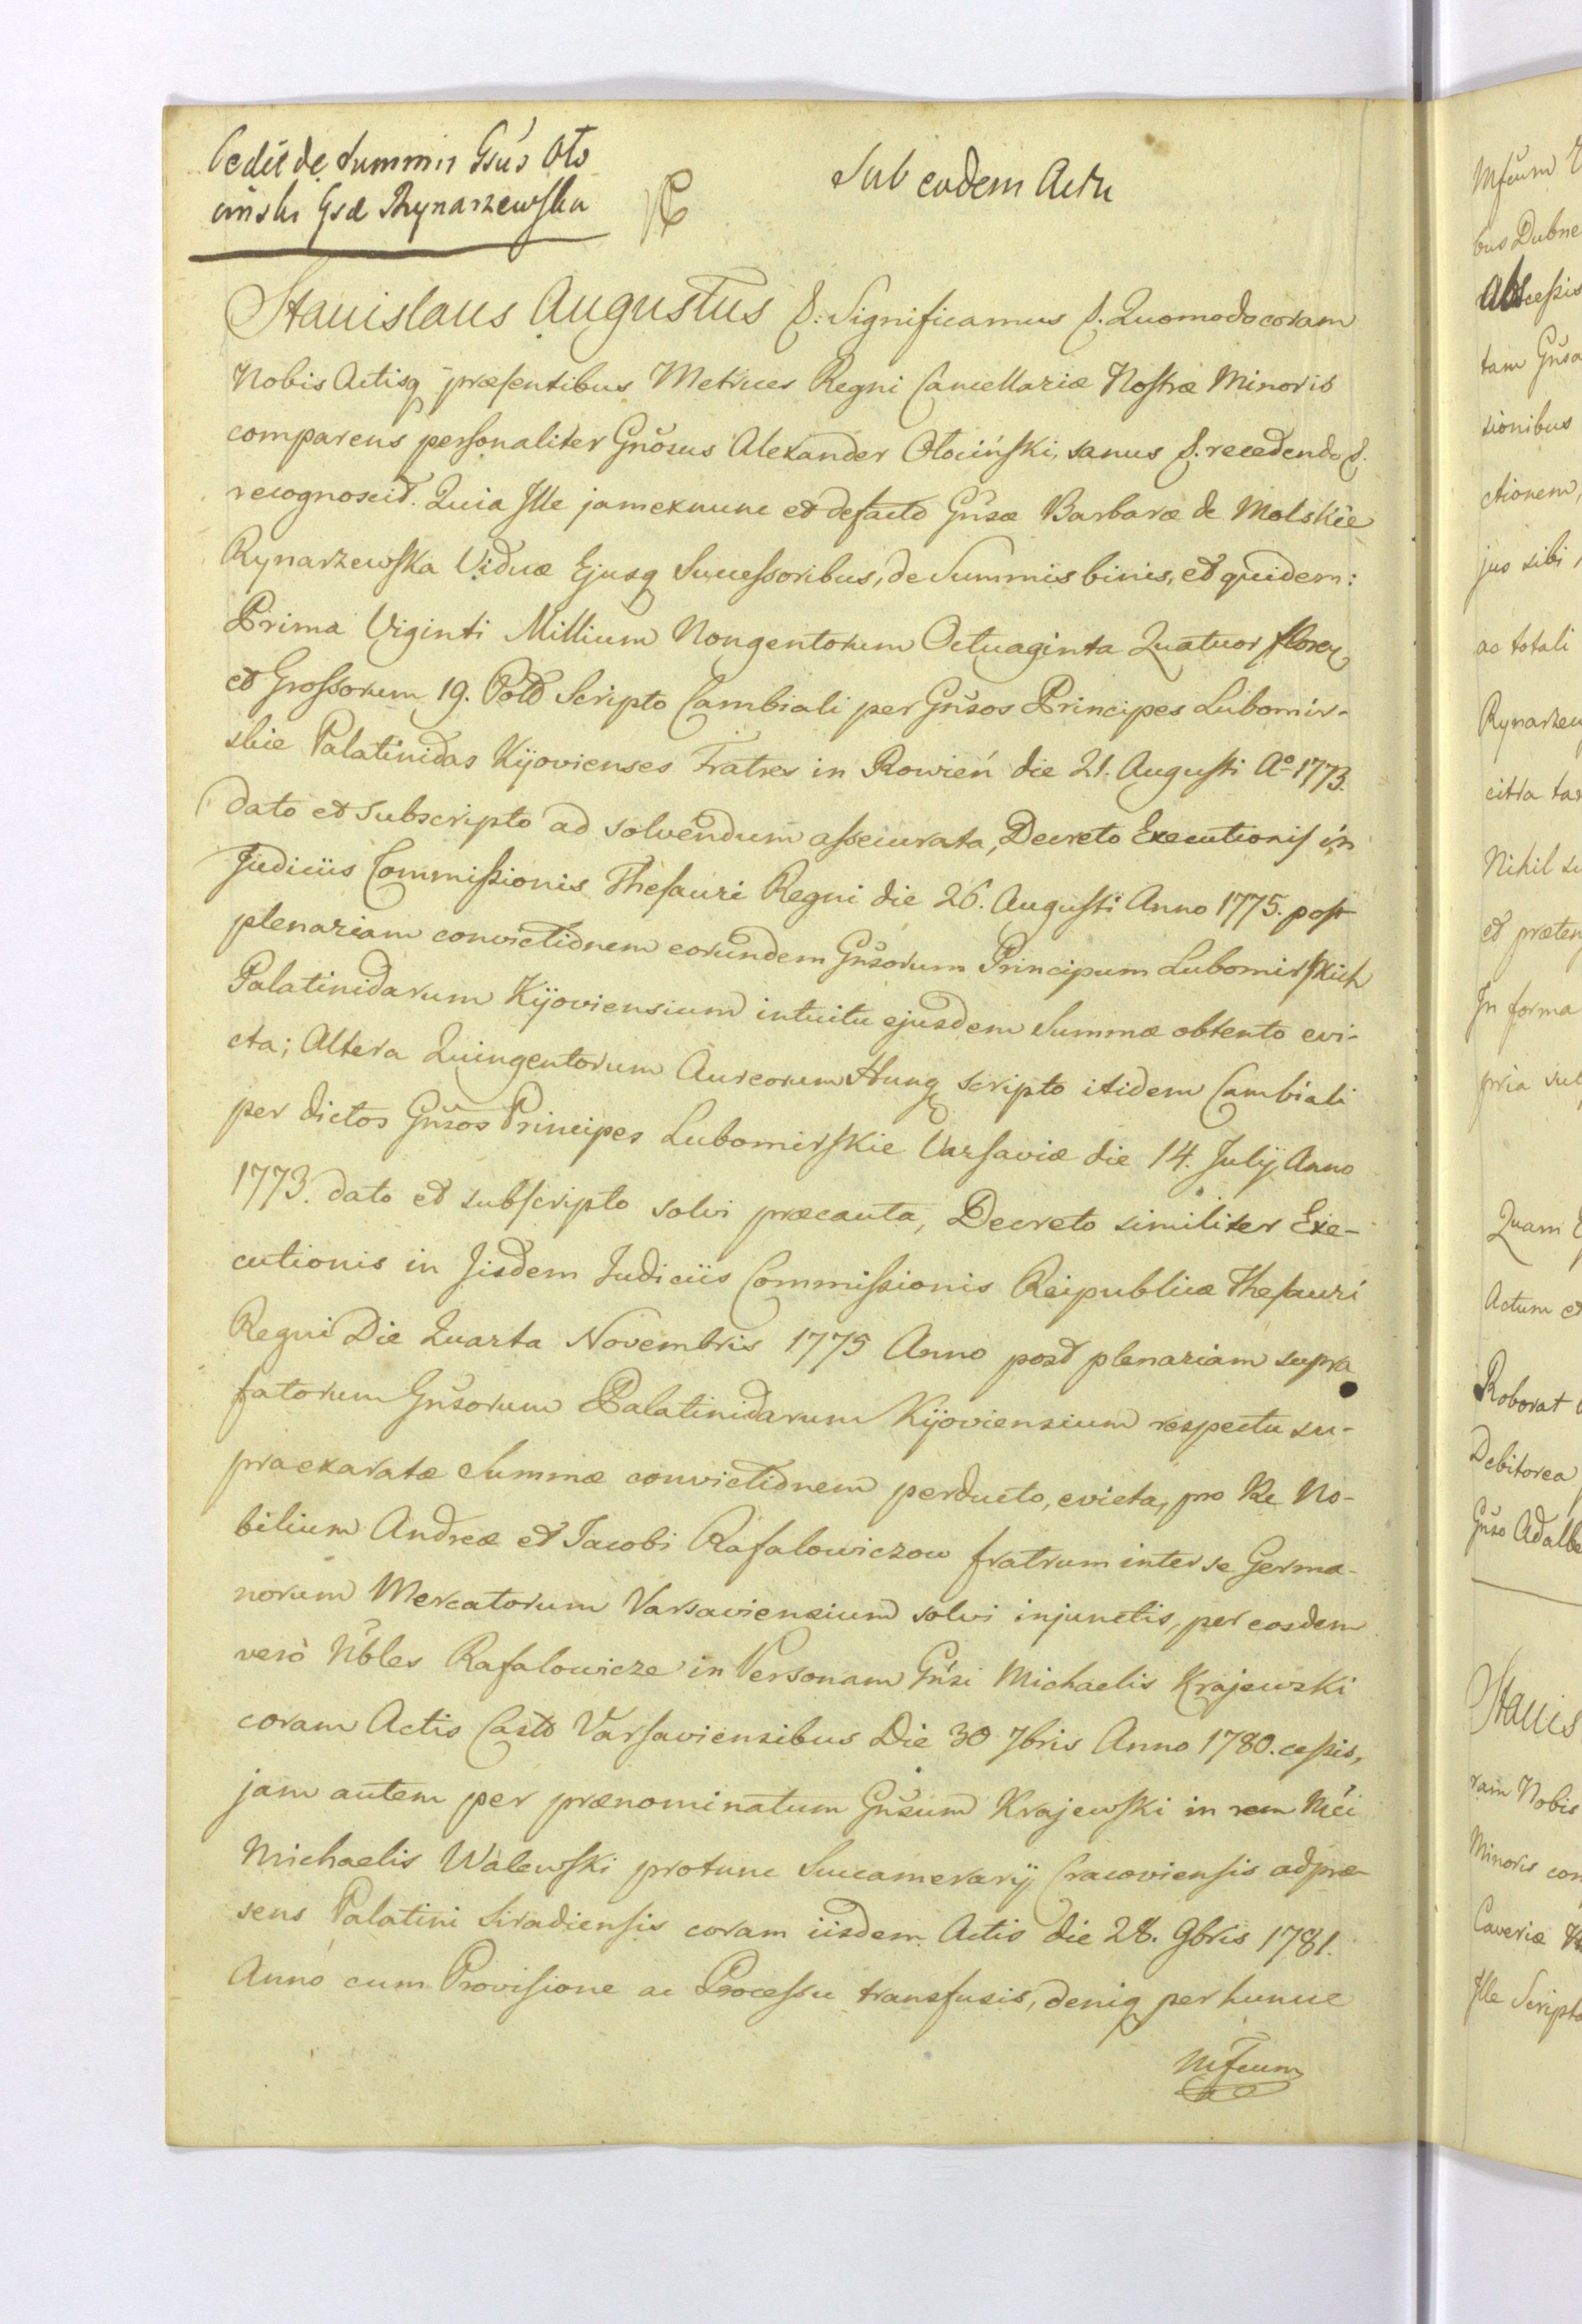 Cedit de Summis Gsus Oto
ciński Gsæ Rynarzewska
Sub eodem Actu
Stanislaus Augustus &: Significamus &. Quomodo coram
Nobis Actisq præsentibus Metrices Regni Cancellariæ Nostræ Minoris
comparens personaliter Gnosus Alexander Otociński, sanus &. recedendo &.
recognoscit. Quia Ille jam exnunc et defacto Gnsæ Barbaræ de Molskie
Rynarzewska Viduæ Ejusq Successoribus, de Summis binis, et quidem:
Prima Viginti Millium Nongentorum Octuaginta Quatuor floren
et Grossorum 19. Polo Scripto Cambiali per Gnsos Principes Lubomir-
skie Palatinidas Kijovienses Fratres in Rowień die 21. Augusti Aº 1773.
dato et subscripto ad solvendum assecurata, Decreto Executionis in
Judiciis Commissionis Thesauri Regni die 26. Augusti Anno 1775. post
plenariam convictionem eorundem Gnsorum Principum Lubomirskich
Palatinidarum Kijoviensium intuitu ejusdem Summæ obtento evi-
cta; Altera Quingentorum Aureorum Hung scripto itidem Cambiali
per dictos Gnsos Principes Lubomirskie Varsaviæ die 14. Julij Anno
1773. dato et subscripto solvi præcauta, Decreto similiter Exe-
cutionis in Jisdem Judiciis Commissionis Reipublicæ Thesauri
Regni Die Quarta Novembris 1775 Anno post plenariam supra
fatorum Gnsorum Palatinidarum Kijoviensium respectu su-
praexaratæ Summæ convictionem perducto, evicta, pro Re No-
bilium Andreæ et Jacobi Rafalowiczow fratrum inter se Germa-
norum Mercatorum Varsaviensium solvi injunctis, per eosdem
verò Nbles Rafalowicze in Personam Gnsi Michaelis Krajewski
coram Actis Castr Varsaviensibus Die 30 7bris Anno 1780. cessis,
jam autem per prænominatum Gnsum Krajewski in rem Mci
Michaelis Walewski protunc Succamerarij Cracoviensis ad præ-
sens Palatini Siradiensis coram iisdem Actis die 28. 9bris 1781.
Anno cum Provisione ac Processu transfusis, deniq per hunce
Mfcum